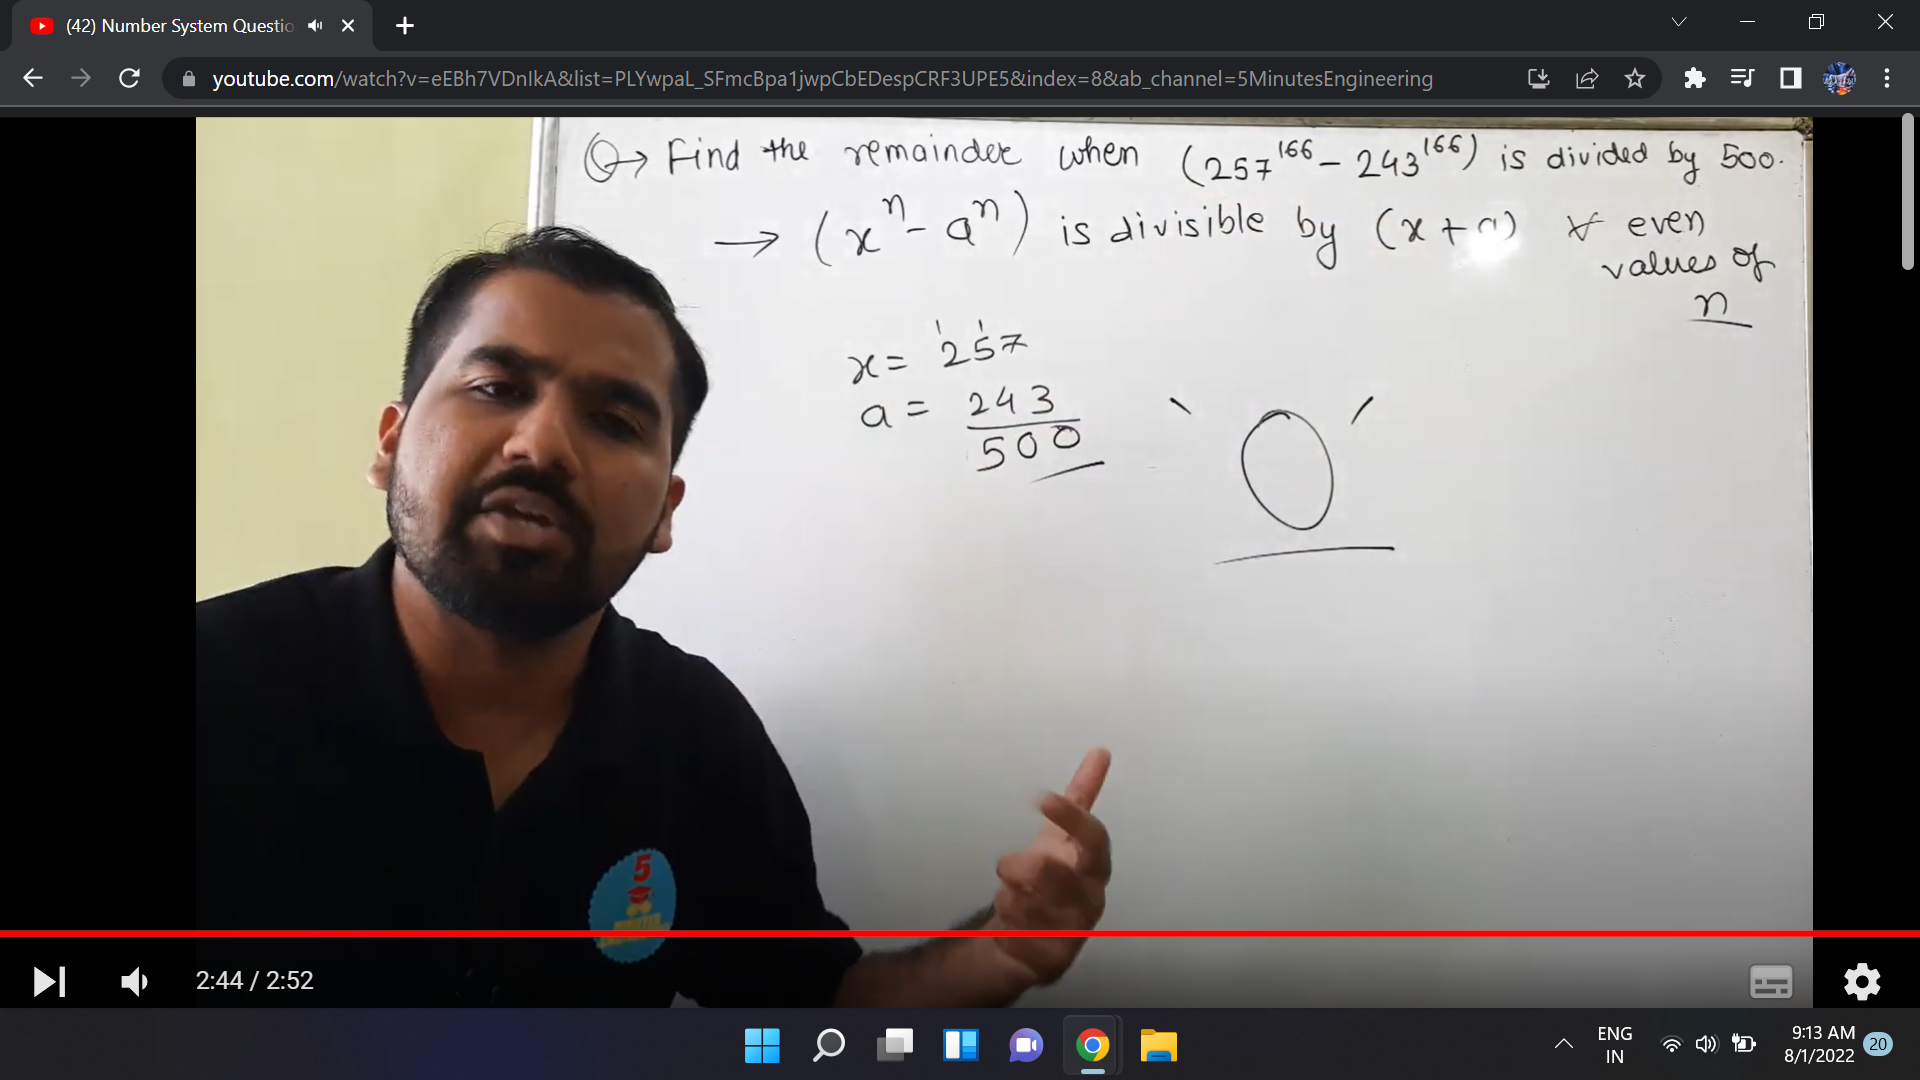 (42) Number System Questio
youtube.com/watch?v=eEBh7VDnIkA&list=PLYwpaL_SFmcBpa1jwpCbEDespCRF3UPE5&index=8&ab_channel=5MinutesEngineering
Q→ Find the remainder when (257¹⁶⁶ - 243¹⁶⁶) is divided by 500.
→ (xⁿ - aⁿ) is divisible by (x + a) ∀ even
values of
n
1 1
x = 257
a = 243
500
0
5
2:44 / 2:52
ENG
IN
9:13 AM
8/1/2022
20